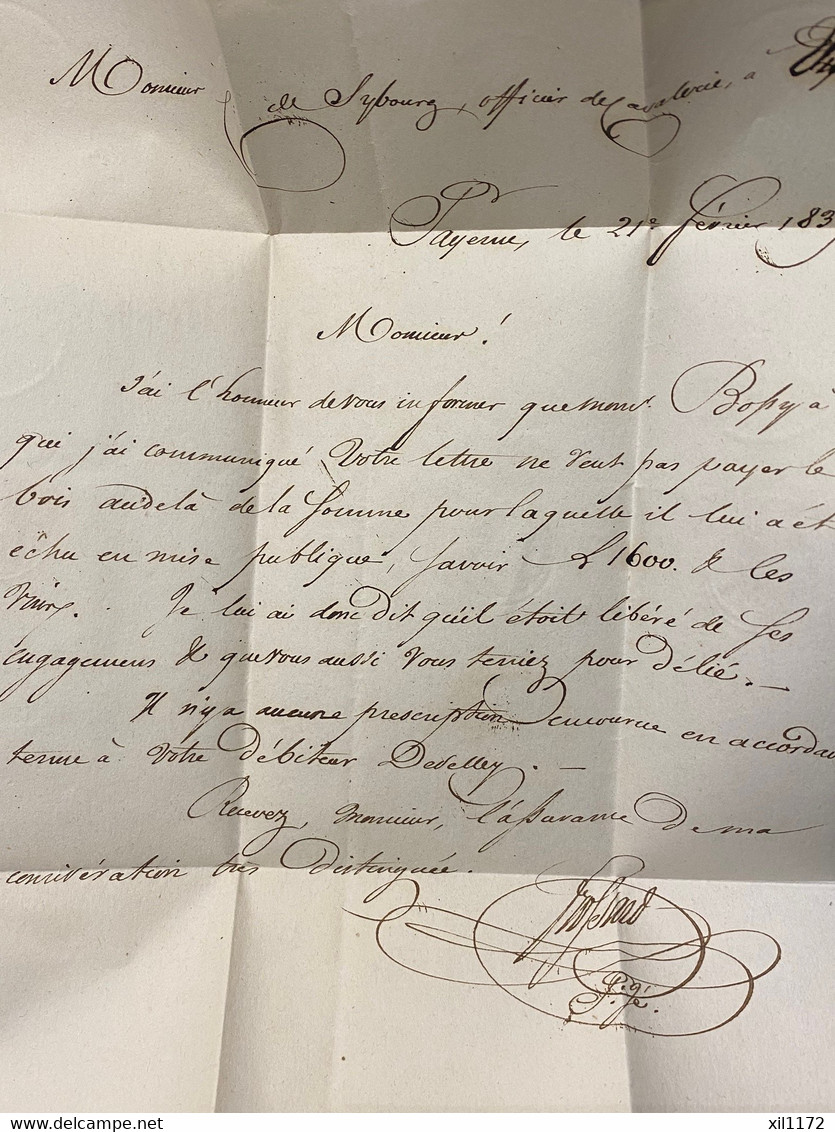 Monsieur de Sybourg, officier de Cavalerie, à
Payerne, le 21e. février 183
Monsieur!
J'ai l'honneur de vous informer que monsr. Bossy à
qui j'ai communiqué Votre lettre ne veut pas payer le
bois audelà de la somme pour laquelle il lui a ét
échu en mise publique, savoir £ 1600. & les
Vins. Je lui ai donc dit qu'il étoit libéré de ses
engagemens & que vous aussi Vous teniez pour délié. —
Il n'y a aucune prescription encourue en accordan
terme à Votre débiteur Devolley. —
Recevez, monsieur, l'assurance de ma
considération très distinguée.
Frossard
P. gé.
delcampe.net
xil1172